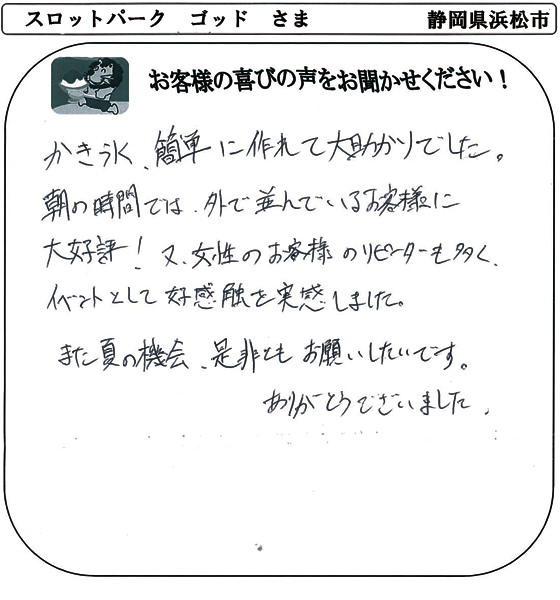 スロットパーク ゴッド さま 静岡県浜松市
お客様の喜びの声をお聞かせください！
かき氷、簡単に作れて大助かりでした。
朝の時間では、外で並んでいるお客様に
大好評！ 又、女性のお客様のリピーターも多く、
イベントとして好感触を実感しました。
また夏の機会、是非ともお願いしたいです。
ありがとうございました。